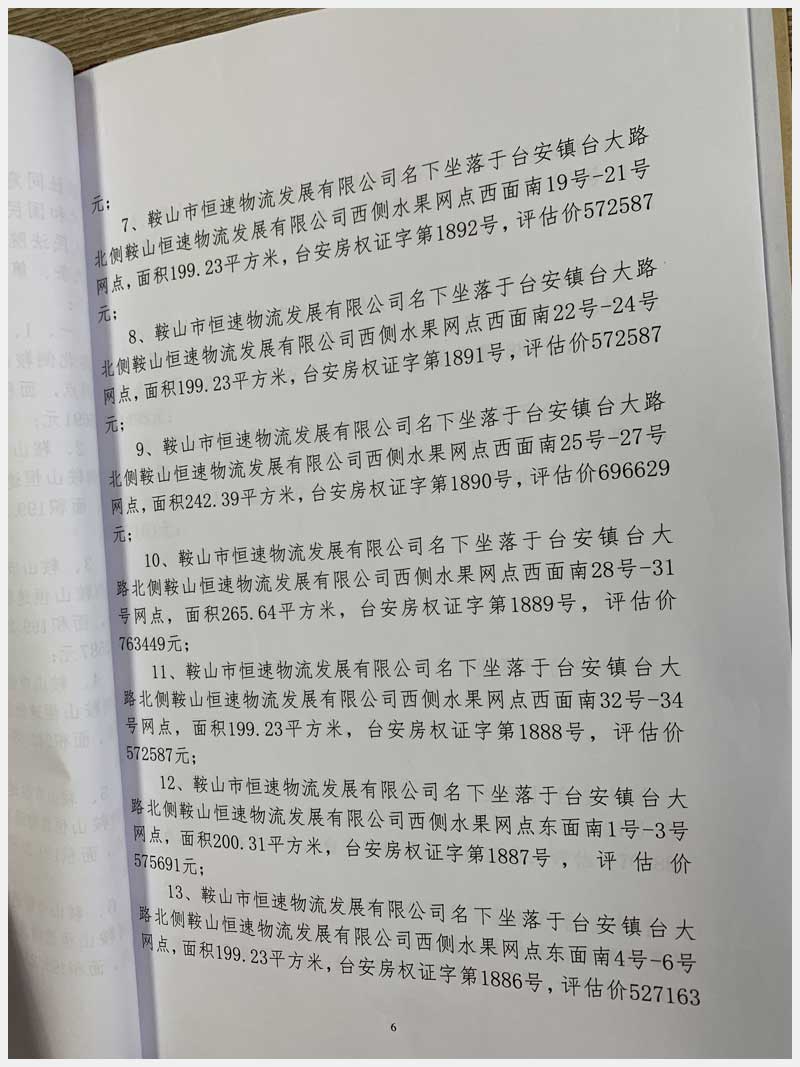 元；
7、鞍山市恒速物流发展有限公司名下坐落于台安镇台大路
北侧鞍山恒速物流发展有限公司西侧水果网点西面南19号-21号
网点，面积199.23平方米，台安房权证字第1892号，评估价572587
元；
8、鞍山市恒速物流发展有限公司名下坐落于台安镇台大路
北侧鞍山恒速物流发展有限公司西侧水果网点西面南22号-24号
网点，面积199.23平方米，台安房权证字第1891号，评估价572587
元；
9、鞍山市恒速物流发展有限公司名下坐落于台安镇台大路
北侧鞍山恒速物流发展有限公司西侧水果网点西面南25号-27号
网点，面积242.39平方米，台安房权证字第1890号，评估价696629
元；
10、鞍山市恒速物流发展有限公司名下坐落于台安镇台大
路北侧鞍山恒速物流发展有限公司西侧水果网点西面南28号-31
号网点，面积265.64平方米，台安房权证字第1889号，评估价
763449元；
11、鞍山市恒速物流发展有限公司名下坐落于台安镇台大
路北侧鞍山恒速物流发展有限公司西侧水果网点西面南32号-34
号网点，面积199.23平方米，台安房权证字第1888号，评估价
572587元；
12、鞍山市恒速物流发展有限公司名下坐落于台安镇台大
路北侧鞍山恒速物流发展有限公司西侧水果网点东面南1号-3号
网点，面积200.31平方米，台安房权证字第1887号，评估价
575691元；
13、鞍山市恒速物流发展有限公司名下坐落于台安镇台大
路北侧鞍山恒速物流发展有限公司西侧水果网点东面南4号-6号
网点，面积199.23平方米，台安房权证字第1886号，评估价527163
6